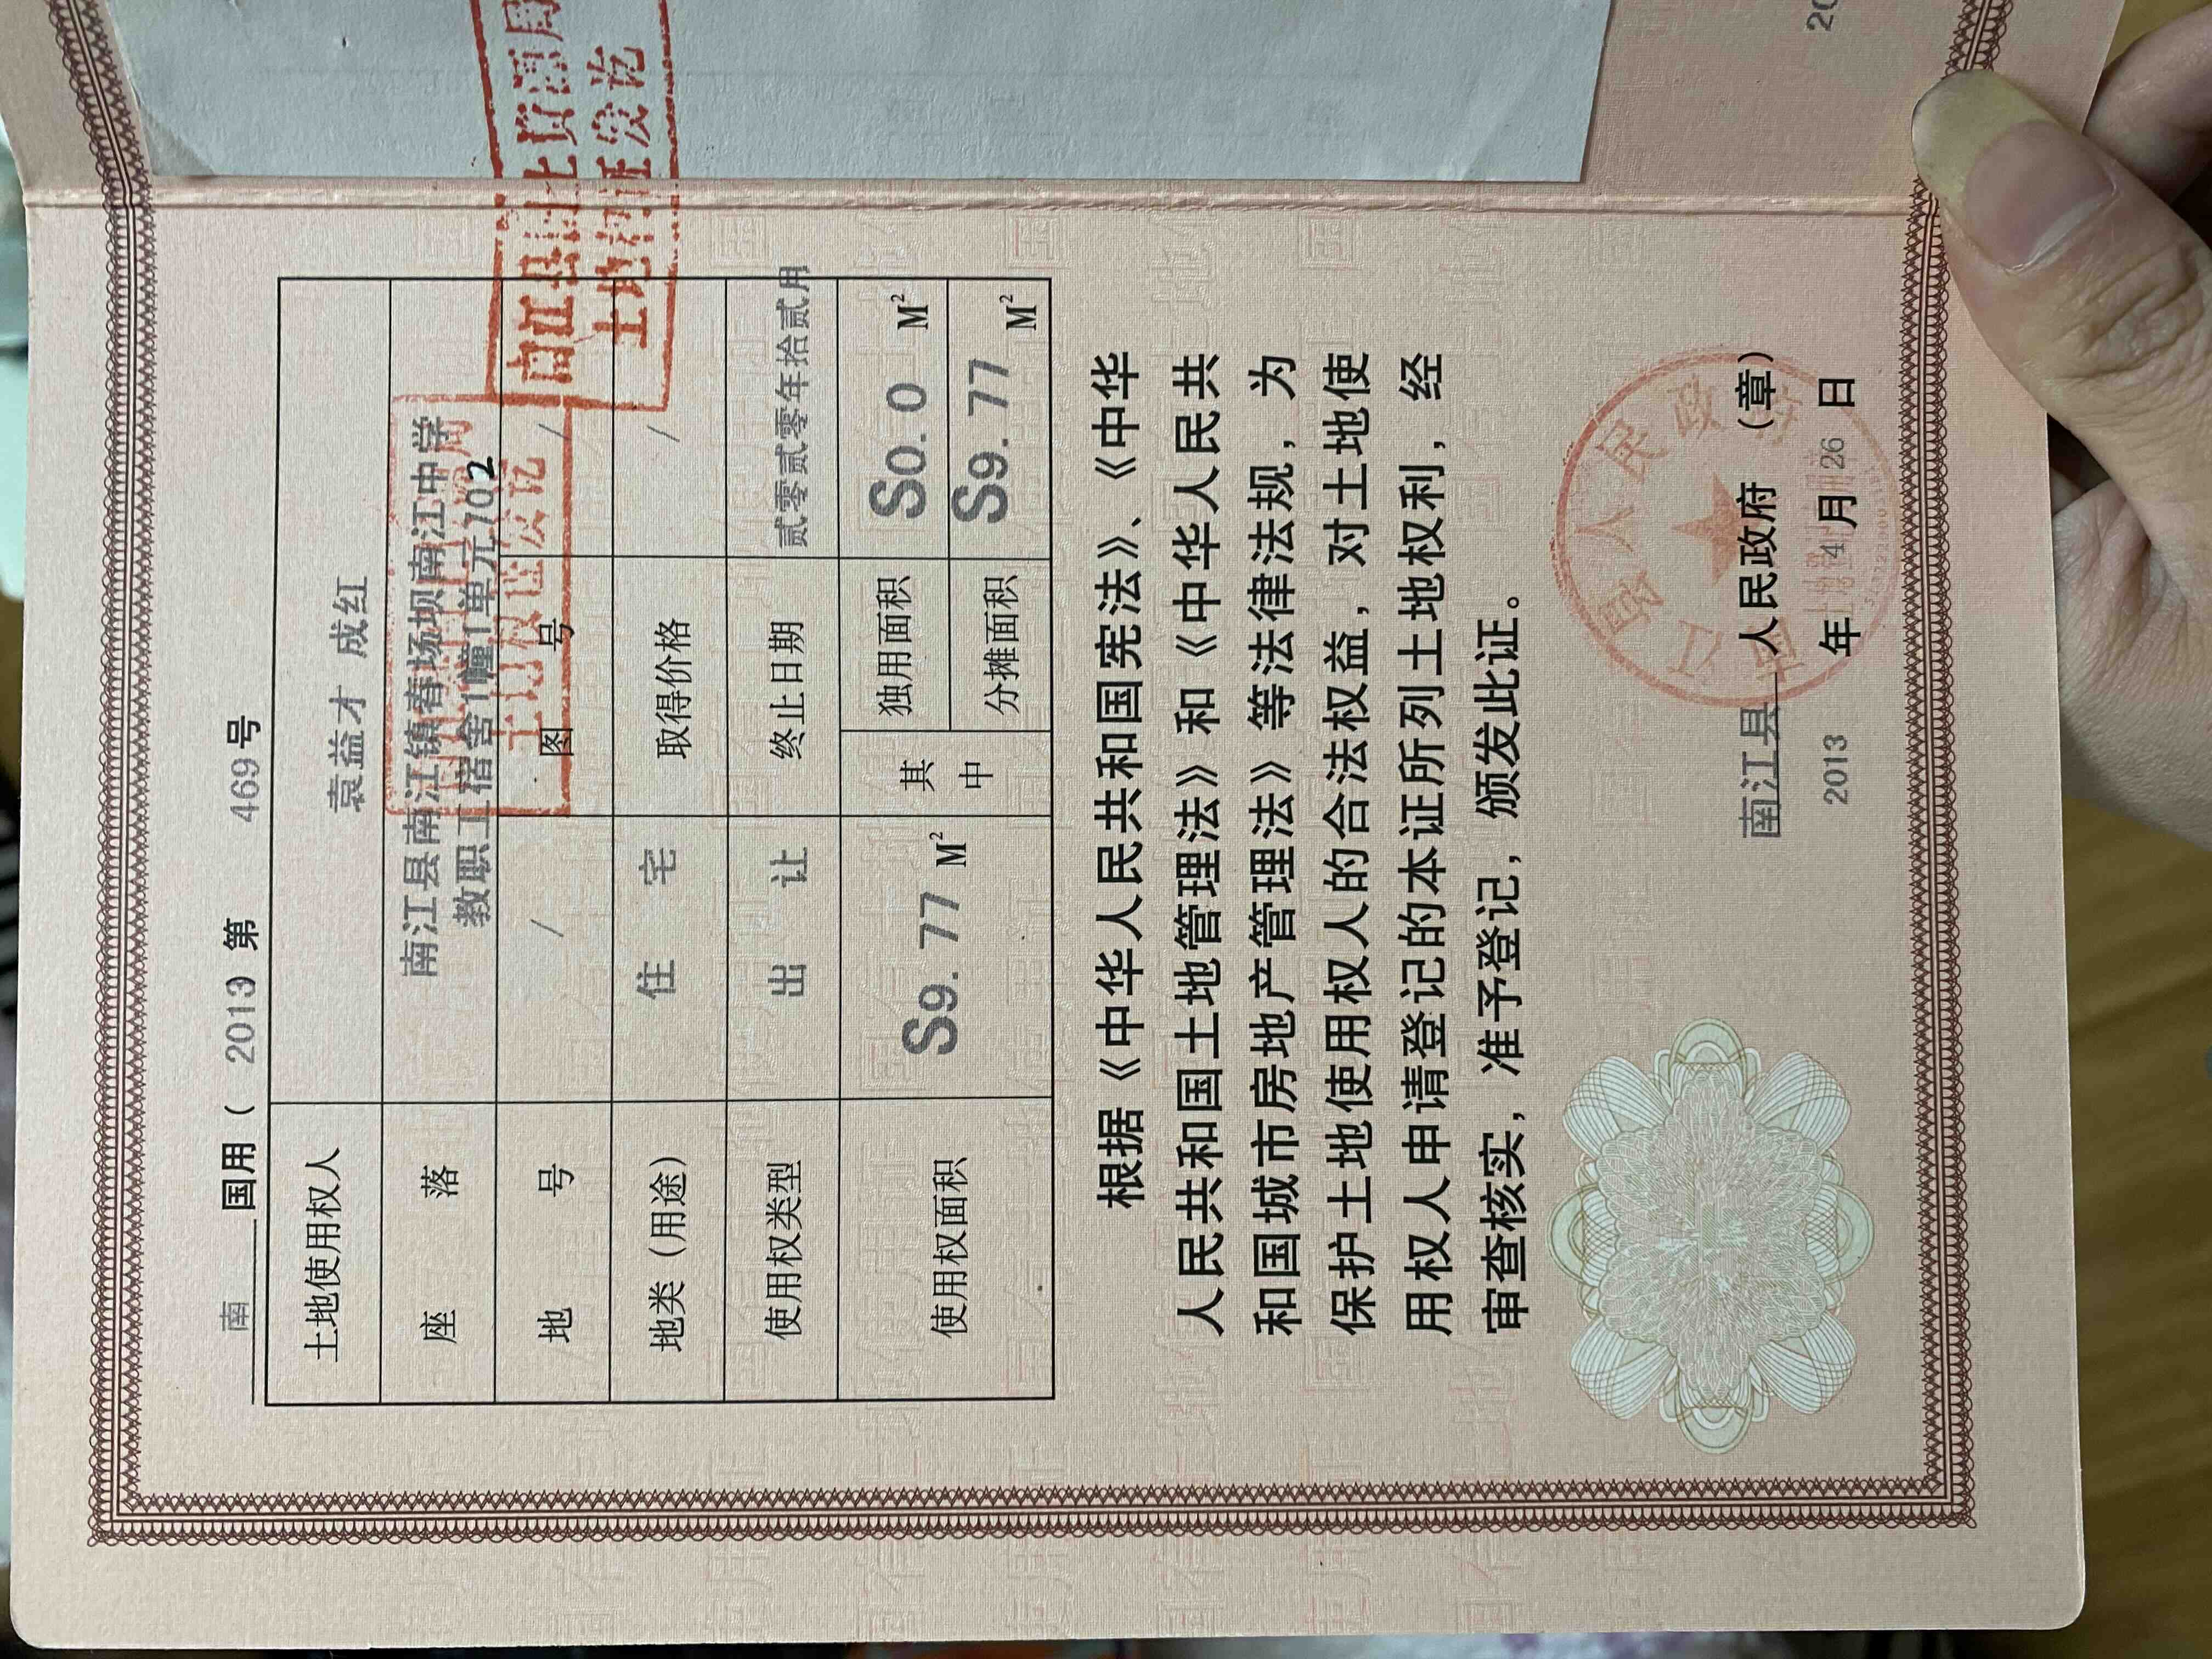 南 国用（ 2013）第 469 号
土地使用权人 袁益才 成红
座 落 南江县南江镇春场坝南江中学
教职工宿舍1幢1单元702
地 号 / 图 号 /
地类（用途） 住 宅 取得价格 /
使用权类型 出 让 终止日期 贰零贰零年拾贰月
使用权面积 S9.77 M² 其中 独用面积 S0.0 M²
分摊面积 S9.77 M²
南江县国土资源局
土地权证发讫
根据《中华人民共和国宪法》、《中华
人民共和国土地管理法》和《中华人民共
和国城市房地产管理法》等法律法规，为
保护土地使用权人的合法权益，对土地使
用权人申请登记的本证所列土地权利，经
审查核实，准予登记，颁发此证。
南江县 人民政府 （章）
2013 年 4 月 26 日
南江县人民政府
20